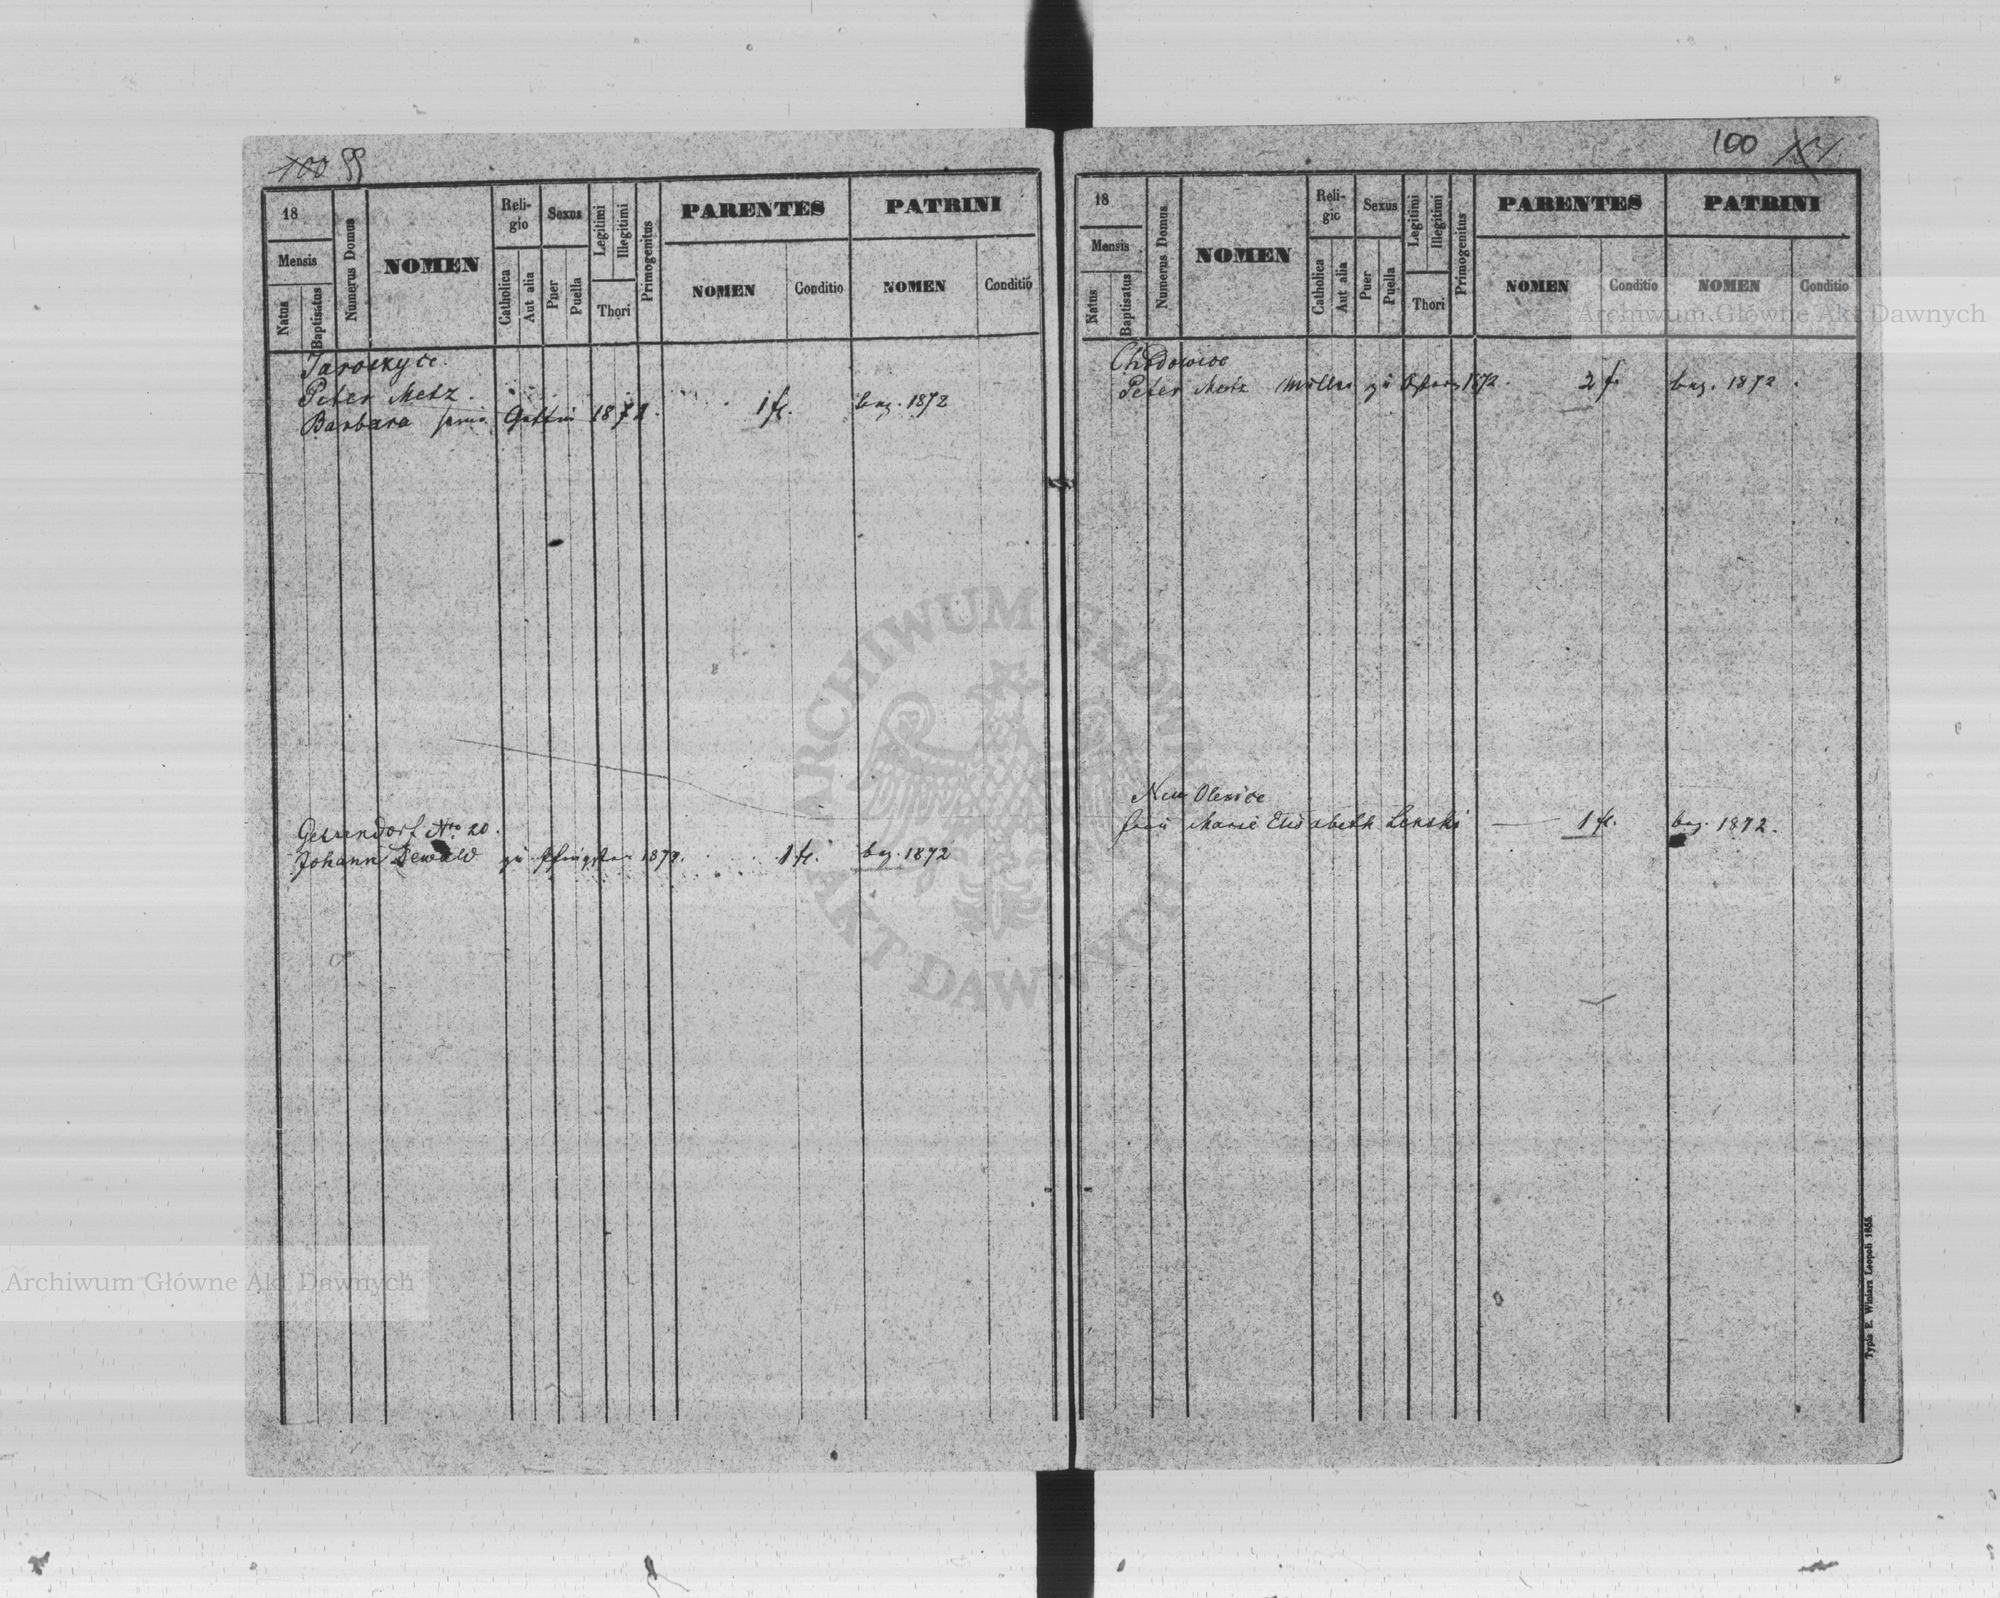 100 99
18
Mensis
Natus
Baptisatus
Numerus Domus
NOMEN
Reli-
gio
Catholica
Aut alia
Sexus
Puer
Puella
Legitimi
Illegitimi
Thori
Primogenitus
PARENTES
NOMEN
Conditio
PATRINI
NOMEN
Conditio
Jaroszyce.
Peter Metz.
Barbara Gattin 1872. 1 fl. bez. 1872
Gelsendorf Nro 20.
Johann Dewald zu Pfingsten 1872. 1 fl. bez. 1872
100
18
Mensis
Natus
Baptisatus
Numerus Domus
NOMEN
Reli-
gio
Catholica
Aut alia
Sexus
Puer
Puella
Legitimi
Illegitimi
Thori
Primogenitus
PARENTES
NOMEN
Conditio
PATRINI
NOMEN
Conditio
Chodowice
Peter Metz Müller zu Ostern 1872. 2 fl. bez. 1872.
Neu Olexice
Frau Marie Elisabeth Lenski — 1 fl. bez. 1872.
Typis E. Winiarz Leopoli 1855.
Archiwum Główne Akt Dawnych
ARCHIWUM GŁÓWNE AKT DAWNYCH
Archiwum Główne Akt Dawnych